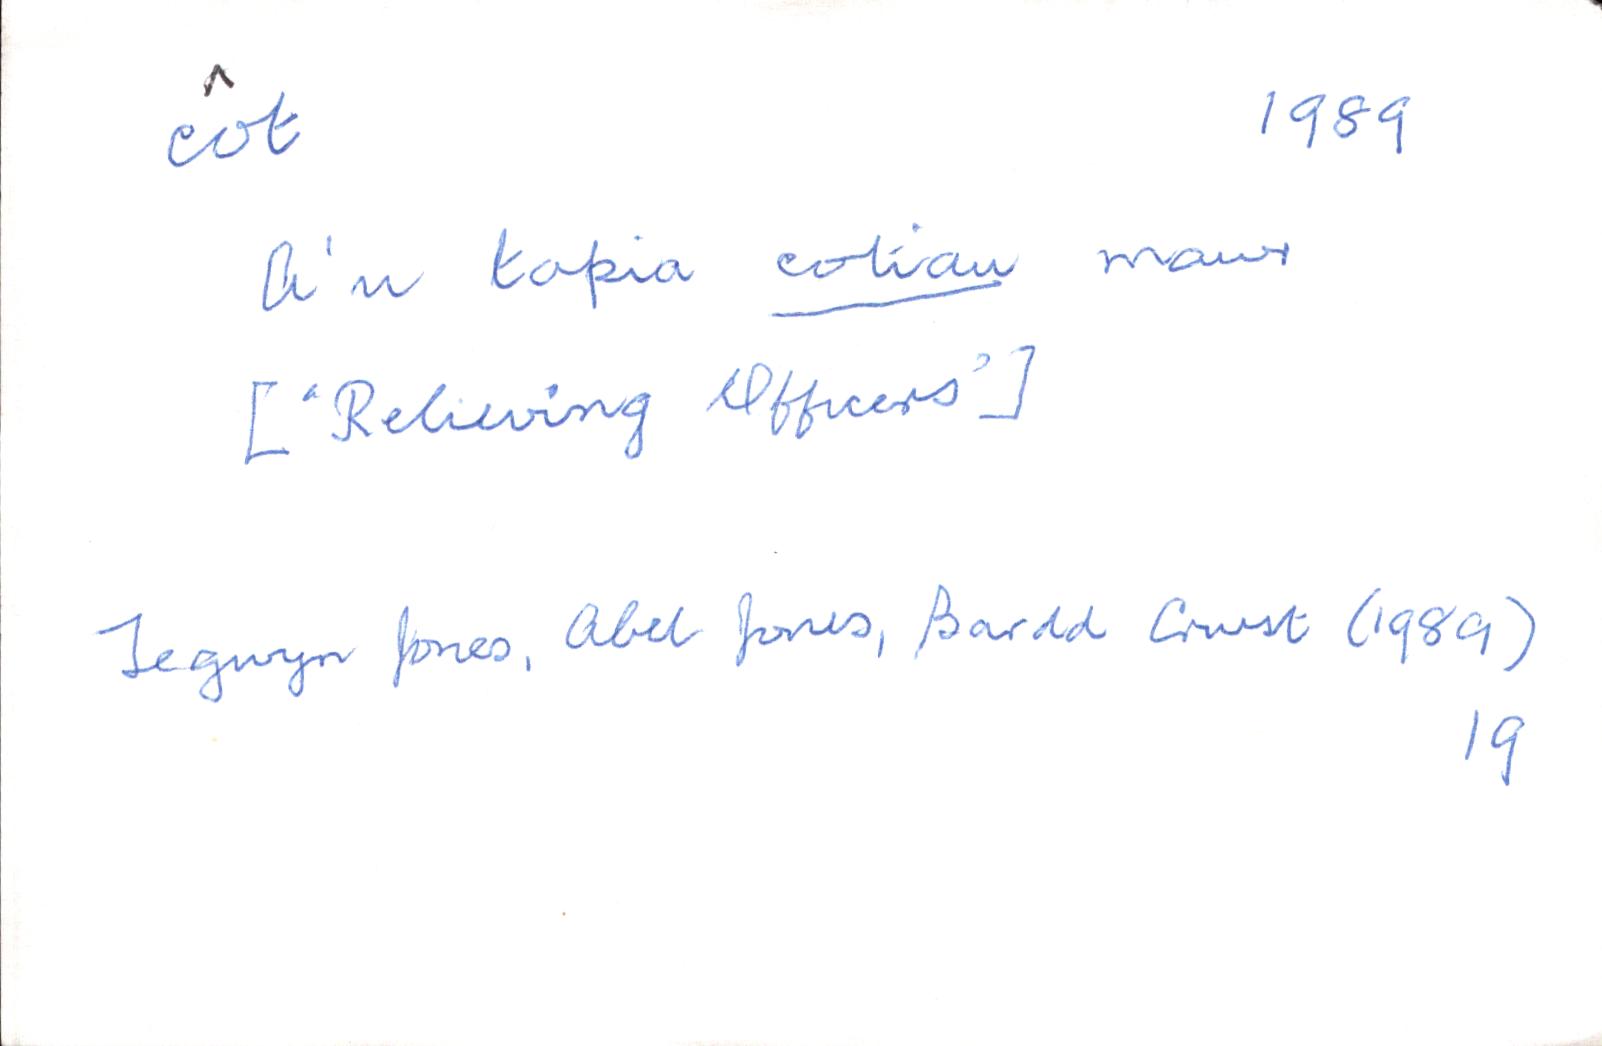 côt 1989
A'n topia cotiau mawr
['Relieving Officers']
Tegwyn Jones, Abel Jones, Bardd Crwst (1989)
19